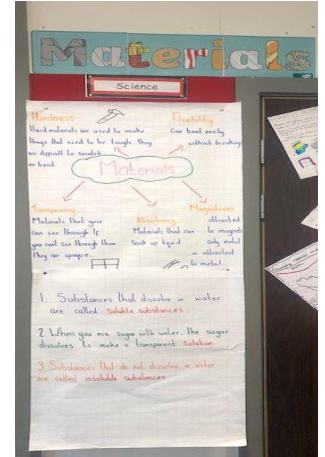 Materials
Science
Hardness
Hard materials are used to make
things that need to be tough. They
are difficult to scratch
or bend.
Flexibility
Can bend easily
without breaking.
Materials
Transparency
Materials that you
can see through. If
you can't see through them
they are opaque.
Absorbency
Materials that can
Soak up liquid
Magnetism
attracted
to magnets
only metal
is attracted
to metal.
1. Substances that dissolve in water
are called soluble substances.
2. When you mix sugar with water, the sugar
dissolves to make a transparent solution.
3. Substances that do not dissolve in water
are called insoluble substances.